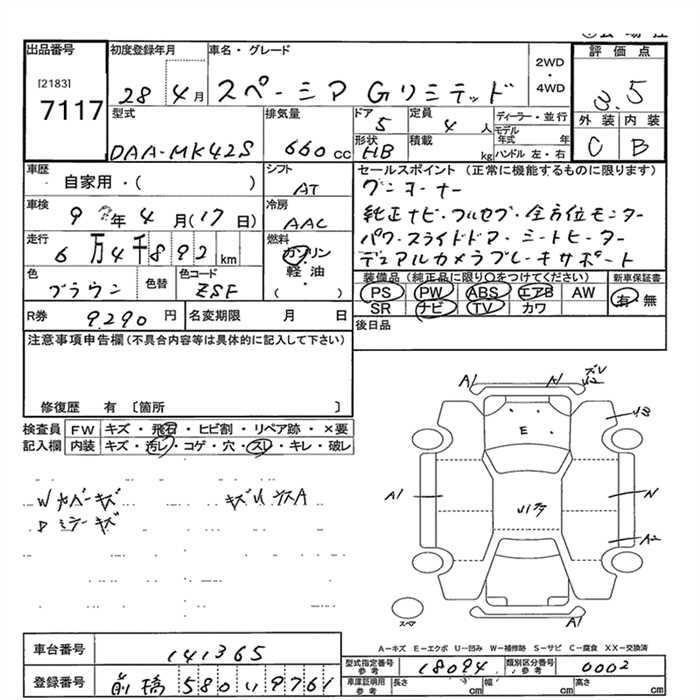 出品番号
[2183]
7117
初度登録年月
28年4月
車名・グレード
スペーシア Gリミテッド
2WD
・
4WD
評価点
3.5
外装 内装
C B
型式
DAA-MK42S
排気量
660cc
ドア
5
形状
HB
定員
4人
積載
kg
ディーラー・並行
モデル年式 年
ハンドル 左・右
車歴
自家用・( )
シフト
AT
セールスポイント (正常に機能するものに限ります)
ワンオーナー
純正ナビ・フルセグ・全方位モニター
パワースライドドア・シートヒーター
デュアルカメラブレーキサポート
車検
9年4月(17日)
冷房
AAC
走行
6万4千892km
燃料
ガソリン
軽油
( )
色
ブラウン
色替
色コード
ZSF
装備品 (純正品に限り○をつけてください)
PS PW ABS エアB AW
SR ナビ TV カワ
新車保証書
有 無
R券
9,290円
名変期限 月 日
後日品
注意事項申告欄(不具合内容等は具体的に記入して下さい)
修復歴 有 〔箇所 〕
検査員
記入欄
FW キズ・飛石・ヒビ割・リペア跡・×要
内装 キズ・汚レ・コゲ・穴・スレ・キレ・破レ
キズ
ミラーキズ
A1
A1
ズレ
U2
E
A1
A2
A1
スペア
A－キズ E－エクボ U－凹み W－補修跡 S－サビ C－腐食 XX－交換済
車台番号
141365
登録番号
前橋 580 い 9761
型式指定番号
参考
18094
類別区分番号
参考
0002
車庫証明用
参考
長さ cm 幅 cm 高さ cm